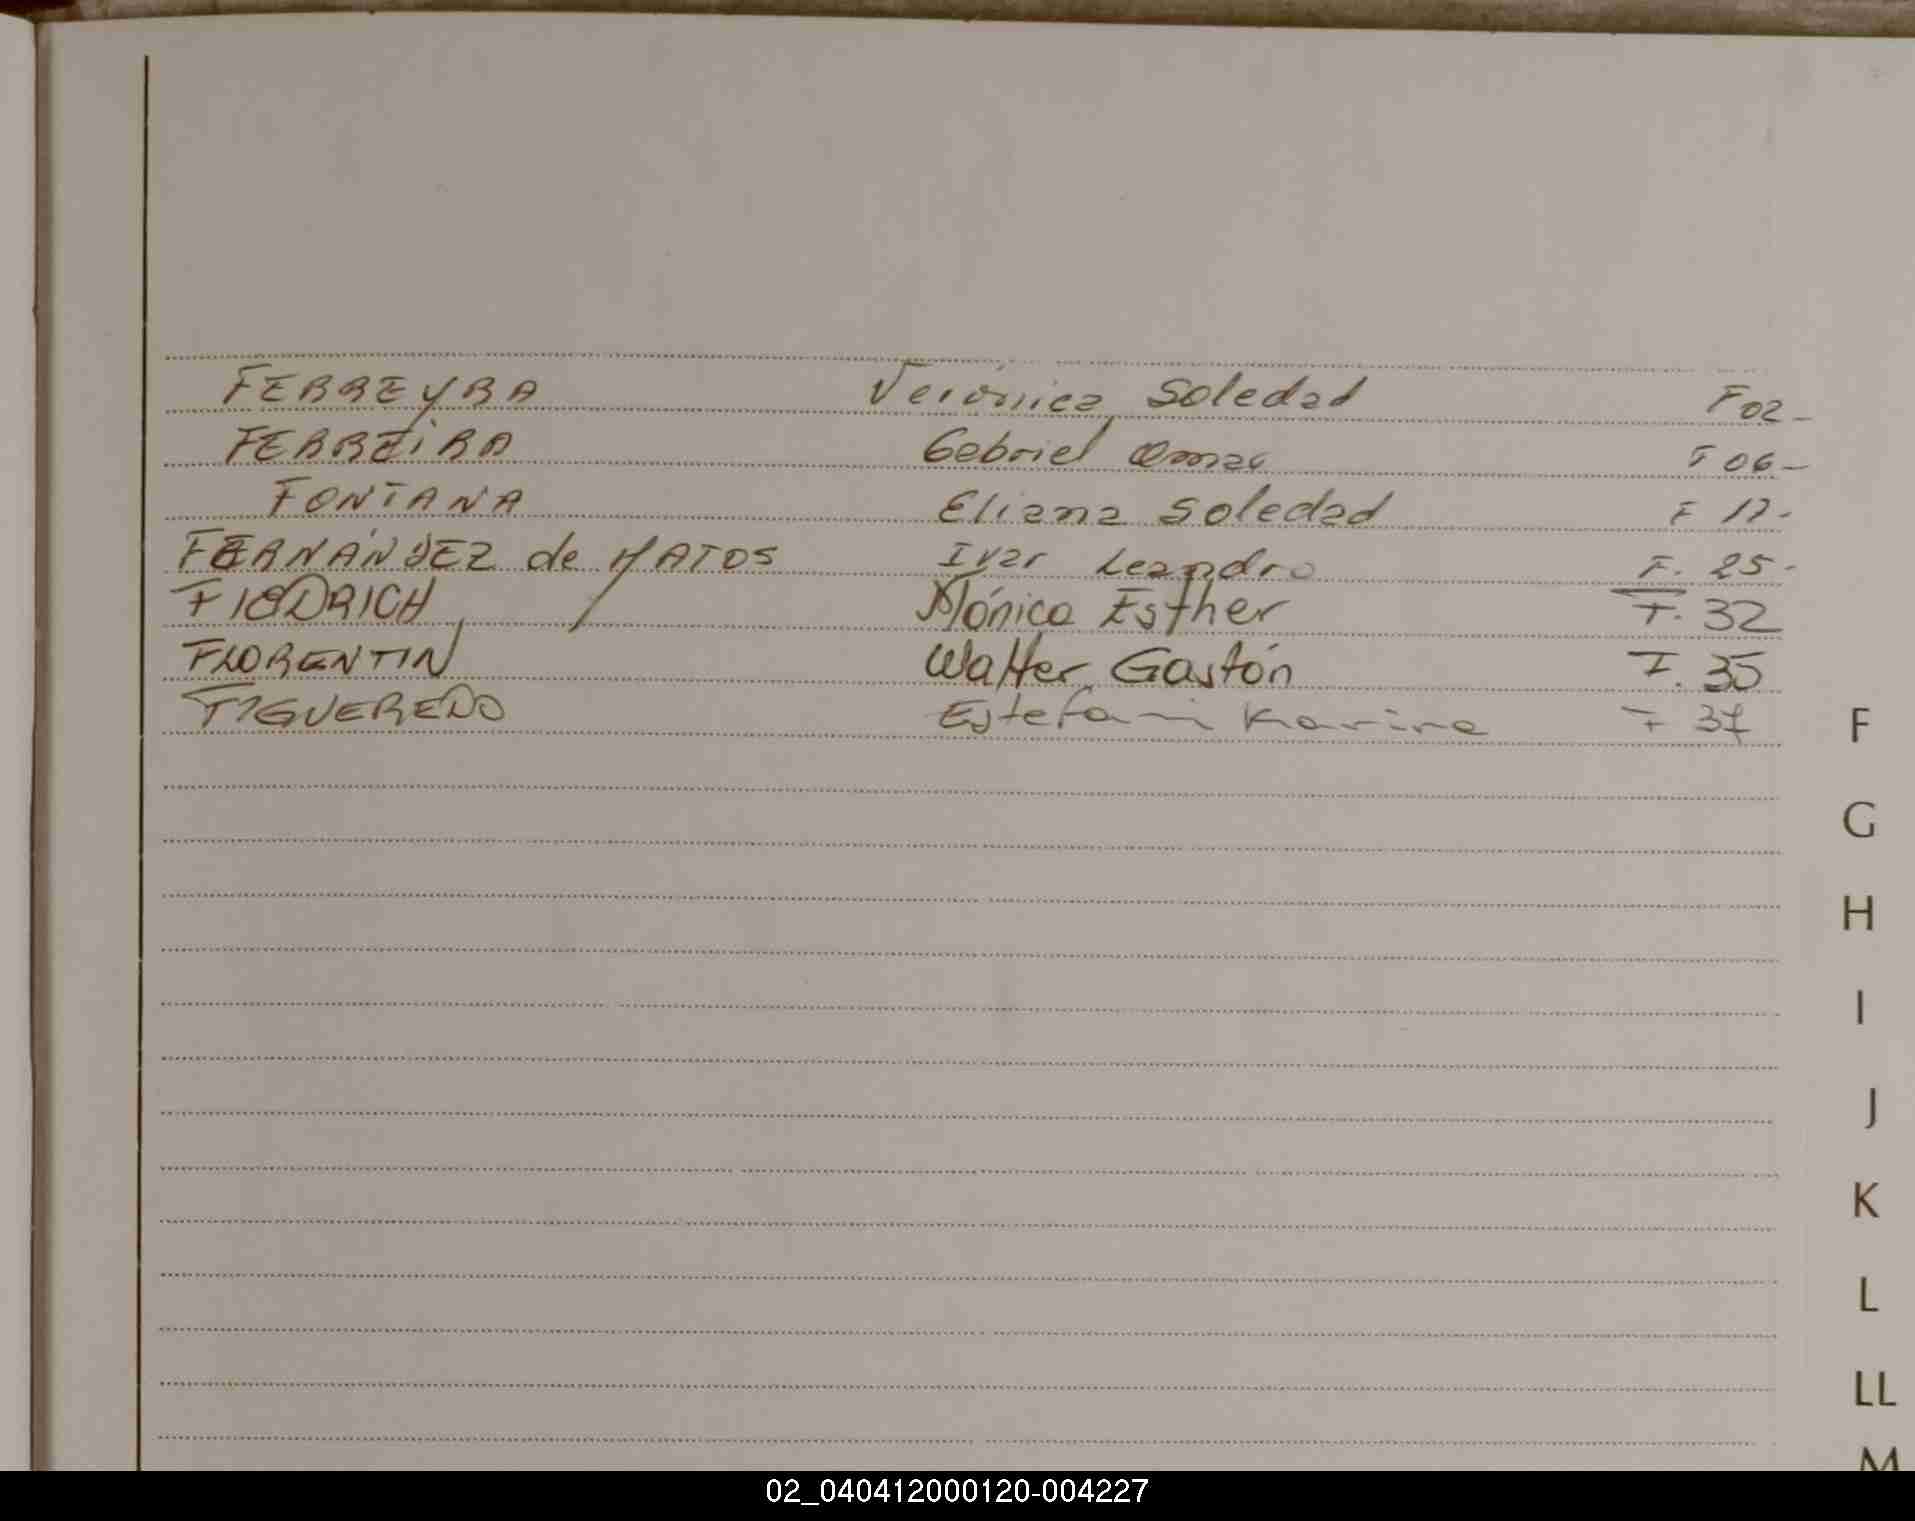 FERREYRA Verónica Soledad F 02-
FERREIRA Gabriel Omar F 06-
FONTANA Eliana Soledad F 17-
FERNÁNDEZ de MATOS Ivar Leandro F. 25-
FIEDRICH Mónica Esther F. 32
FLORENTIN Walter Gastón F. 35
FIGUEREDO Estefani Karina F 37
F
G
H
I
J
K
L
LL
M
02_040412000120-004227